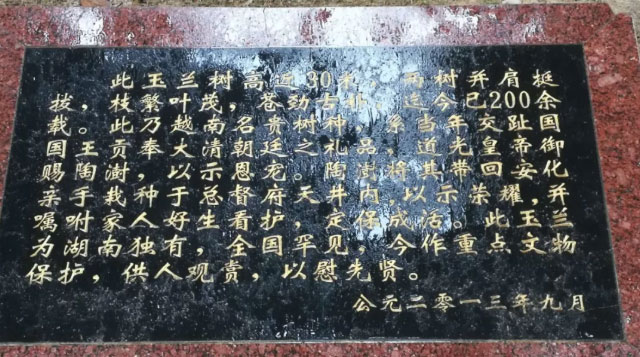 此玉兰树高近30米，两树并肩挺
拔，枝繁叶茂，苍劲古朴，迄今已200余
载。此乃越南名贵树种，系当年交趾国
国王贡奉大清朝廷之礼品，道光皇帝御
赐陶澍，以示恩宠。陶澍将其带回安化
亲手栽种于总督府天井内，以示荣耀，并
嘱咐家人好生看护，定保成活。此玉兰
为湖南独有，全国罕见，今作重点文物
保护，供人观赏，以慰先贤。
公元二零一三年九月